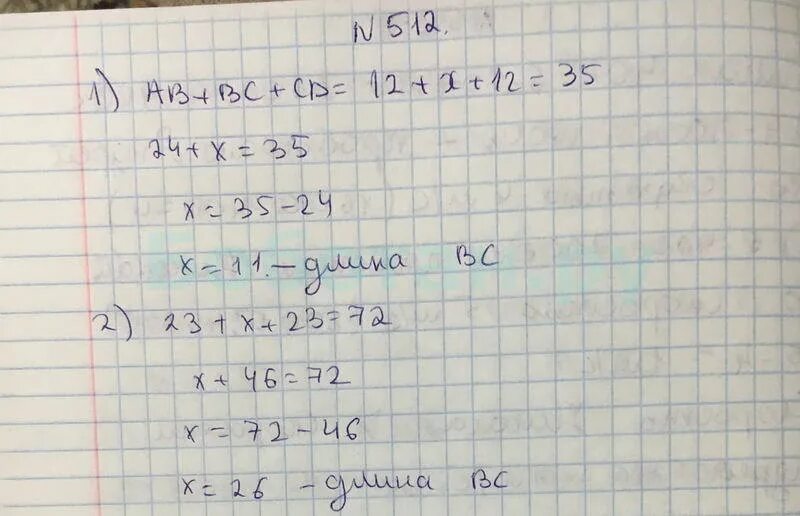 N 512.
1) AB + BC + CD = 12 + x + 12 = 35
24 + x = 35
x = 35 - 24
x = 11. - длина BC
2) 23 + x + 23 = 72
x + 46 = 72
x = 72 - 46
x = 26 - длина BC